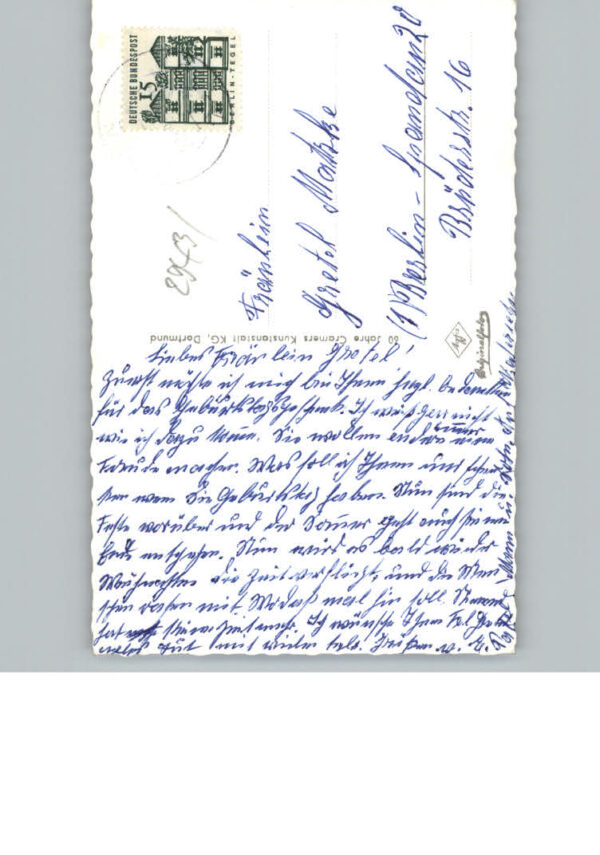 DEUTSCHE BUNDESPOST
15
BERLIN-TEGEL
2943/
Fräulein
Gretel Matzke
(1) Berlin-Spandau 20
Brüderstr. 16
60 Jahre Cramers Kunstanstalt KG, Dortmund
Agfa
Originalfoto
Liebes Fräulein Gretel!
Zuerst möchte ich mich bei Ihnen herzl. bedanken
für das Geburtstagsgeschenk. Ich weiß gar nicht
wie ich dazu komme. Sie wollen andern immer eine
Freude machen. Was soll ich Ihnen nur schen
ken wenn Sie Geburtstag haben. Nun sind die
Feste vorüber und der Sommer geht auch seinem
Ende entgegen. Nun wird es bald wieder
Weihnachten die Zeit verfliegt, und die Men
schen rasen mit. Wo das mal hin soll. Niemand
hat mehr Zeit. Ich wünsche Ihnen Frl. Gretel
alles Gute mit vielen herzl. Grüßen